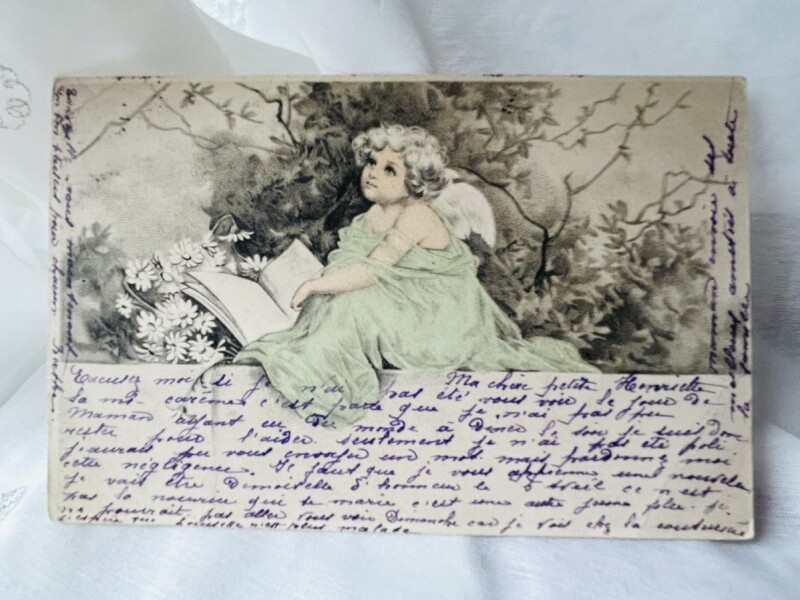 Ma chère petite Henriette
Excusez moi si je n'ai pas été vous voir le jour de
la mi-carême c'est parce que je n'ai pas pu
Maman ayant eu du monde à diner le soir je suis donc
resté pour l'aider. seulement je n'ai pas été poli
j'aurais pu vous envoyer un mot mais pardonnez moi
cette négligence. Il faut que je vous apprenne une nouvelle
je vais être Demoiselle d'honneur le 5 avril ce n'est
pas la nourrice qui se marie c'est une autre jeune fille. je
ne pourrait pas aller vous voir Dimanche car je vais chez la couturière
j'espère que n'est plus malade
maman envoie ses
meilleurs amitiés à toute
la famille